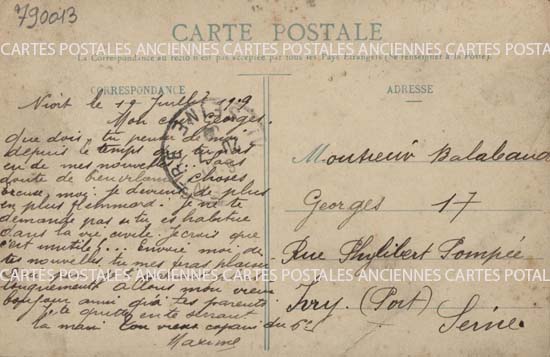 790013
CARTE POSTALE
CARTES POSTALES ANCIENNES CARTES POSTALES ANCIENNES CARTES POSTALES
La Correspondance au recto n'est pas acceptée par tous les Pays Étrangers (Se renseigner à la Poste)
CORRESPONDANCE
Niort le 19 Juillet 1909
Mon cher Georges.
Que dois-tu penser de moi
depuis le temps que tu n'as
eu de mes nouvelles. Sans
doute de bien vilaines choses
excuse moi. je deviens de plus
en plus flemmard. Je ne te
demande pas si tu es habitué
dans la vie civile. je crois que
c'est inutile!... Envoie moi de
tes nouvelles tu me feras plaisir
CARTES POSTALES ANCIENNES CARTES POSTALES ANCIENNES CARTES POSTALES
longuement. Allons mon vieux
bonjour ainsi qu'à tes parents
je te quitte en te serrant
la main Ton vieux copain du 6e
Maxime
ADRESSE
Monsieur Balaband
Georges 17
Rue Philibert Pompée
Ivry. (Port)
Seine.